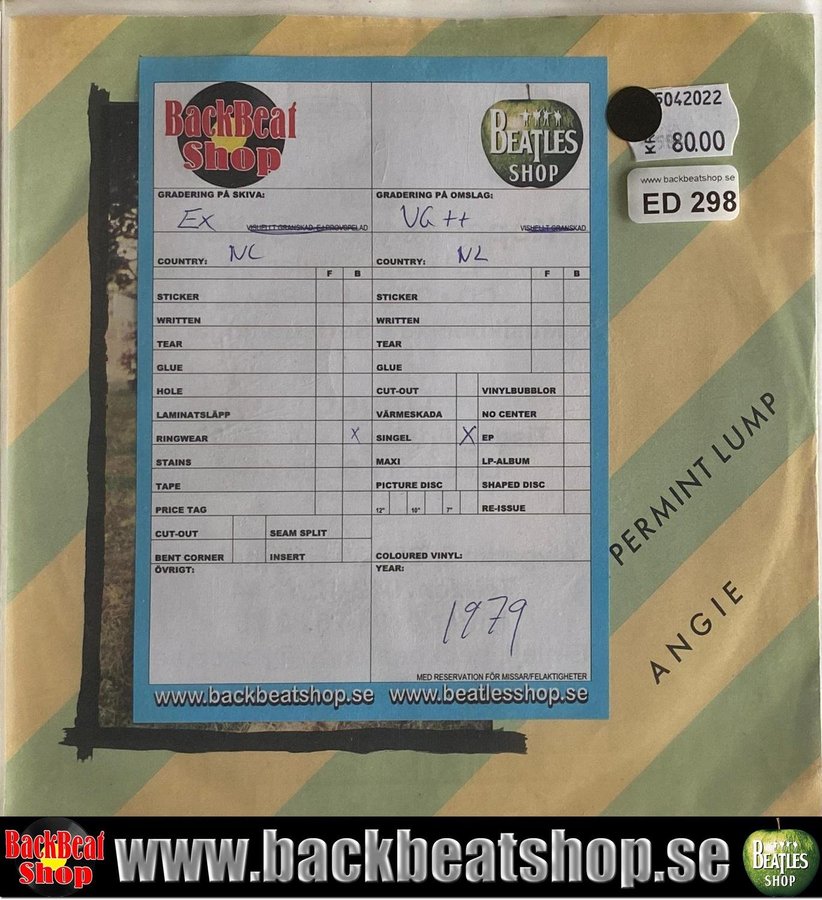 BackBeat
Shop
BEATLES
SHOP
5042022
KR
80.00
www.backbeatshop.se
ED 298
GRADERING PÅ SKIVA:
EX
VISUELLT GRANSKAD, EJ PROVSPELAD
GRADERING PÅ OMSLAG:
VG ++
VISUELLT GRANSKAD
COUNTRY: NL
COUNTRY: NL
F B
F B
STICKER
STICKER
WRITTEN
WRITTEN
TEAR
TEAR
GLUE
GLUE
HOLE
CUT-OUT
VINYLBUBBLOR
LAMINATSLÄPP
VÄRMESKADA
NO CENTER
RINGWEAR X
SINGEL X
EP
STAINS
MAXI
LP-ALBUM
TAPE
PICTURE DISC
SHAPED DISC
PRICE TAG
12" 10" 7"
RE-ISSUE
CUT-OUT
SEAM SPLIT
BENT CORNER
INSERT
COLOURED VINYL:
ÖVRIGT:
YEAR:
1979
MED RESERVATION FÖR MISSAR/FELAKTIGHETER
www.backbeatshop.se www.beatlesshop.se
PERMINT LUMP
ANGIE
BackBeat
Shop
www.backbeatshop.se
BEATLES
SHOP